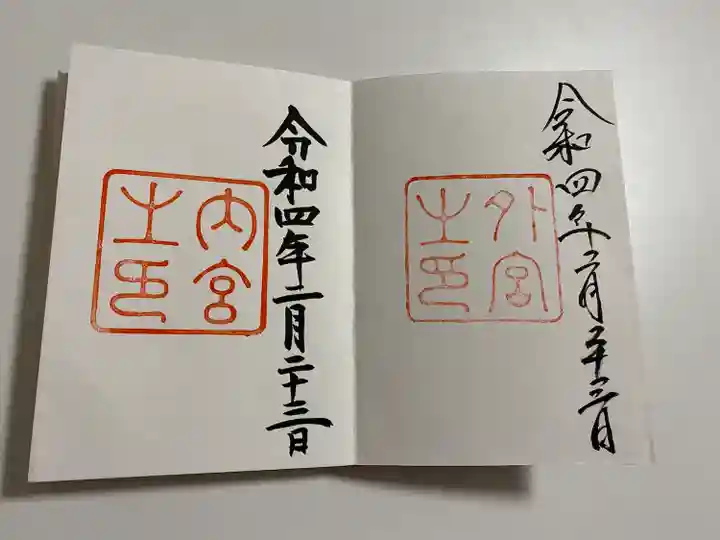 令和四年二月二十三日
外宮
之印
令和四年二月二十三日
内宮
之印